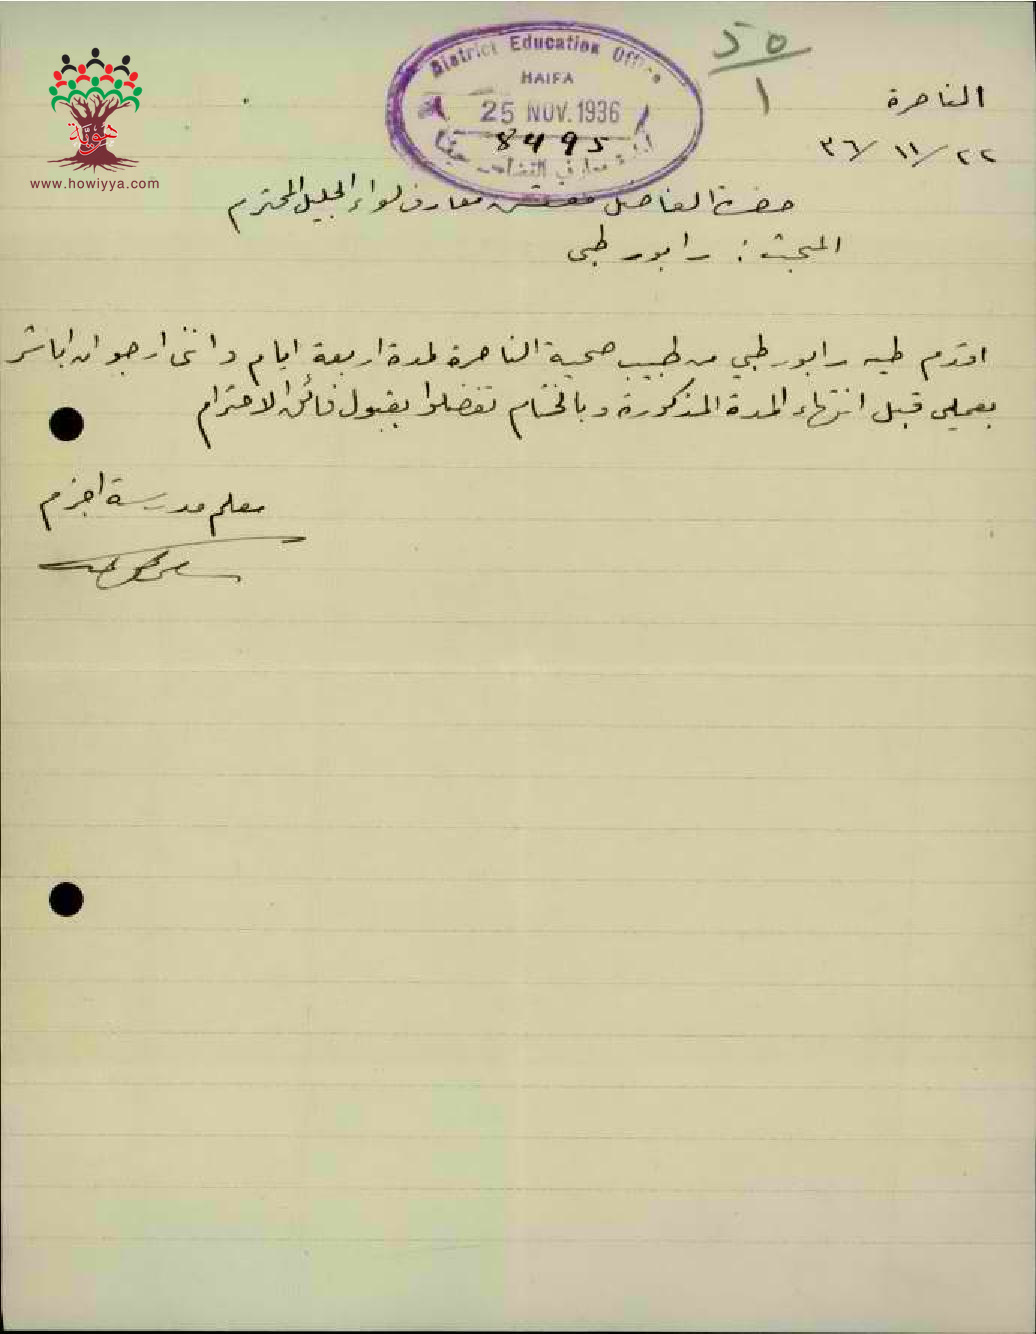 هوية
www.howiyya.com
District Education Office
HAIFA
25 NOV. 1936
8495
٥٠
١
الناصرة
٢٢/ ١١/ ٣٦
حضرة الفاضل مفتش معارف لواء الجليل المحترم
المبحث : رابور طبي
اقدم طيه رابور طبي من طبيب صحية الناصرة لمدة اربعة ايام وانني ارجو ان اباشر
بعملي قبل انتهاء المدة المذكورة وبالختام تفضلوا بقبول فائق الاحترام
معلم مدرسة اجزم